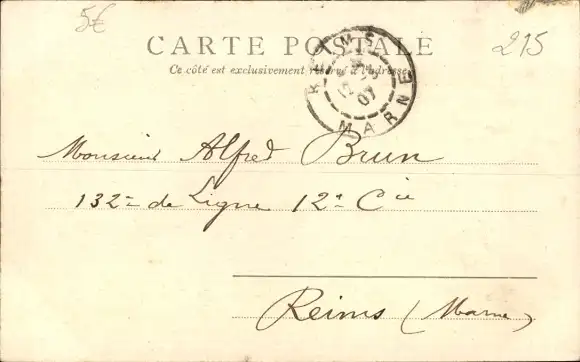 5€
215
CARTE POSTALE
Ce côté est exclusivement réservé à l'adresse
REIMS
07
MARNE
Monsieur Alfred Brun
132e de Ligne 12e Cie
Reims (Marne)